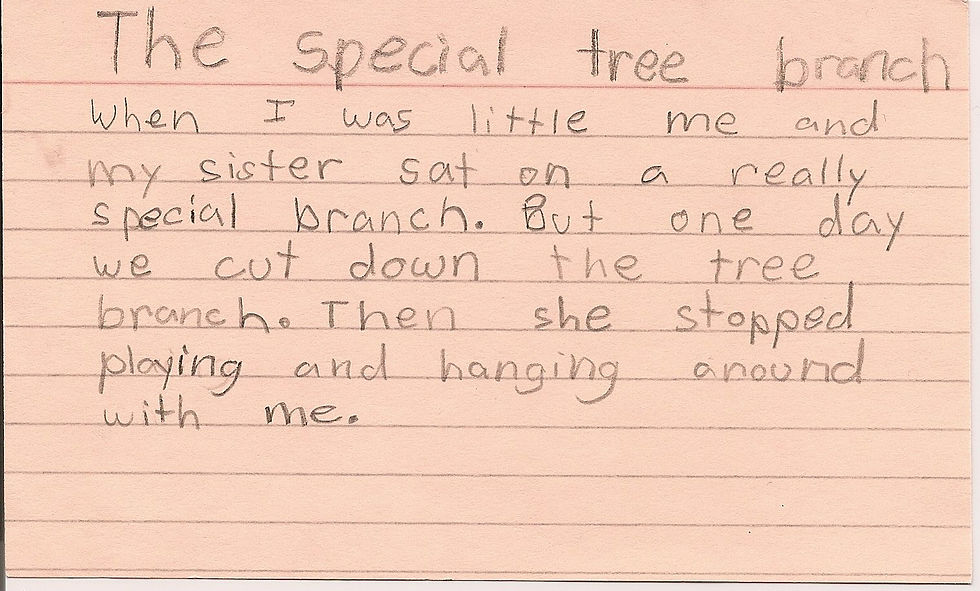 The special tree branch
When I was little me and
my sister sat on a really
special branch. But one day
we cut down the tree
branch. Then she stopped
playing and hanging around
with me.